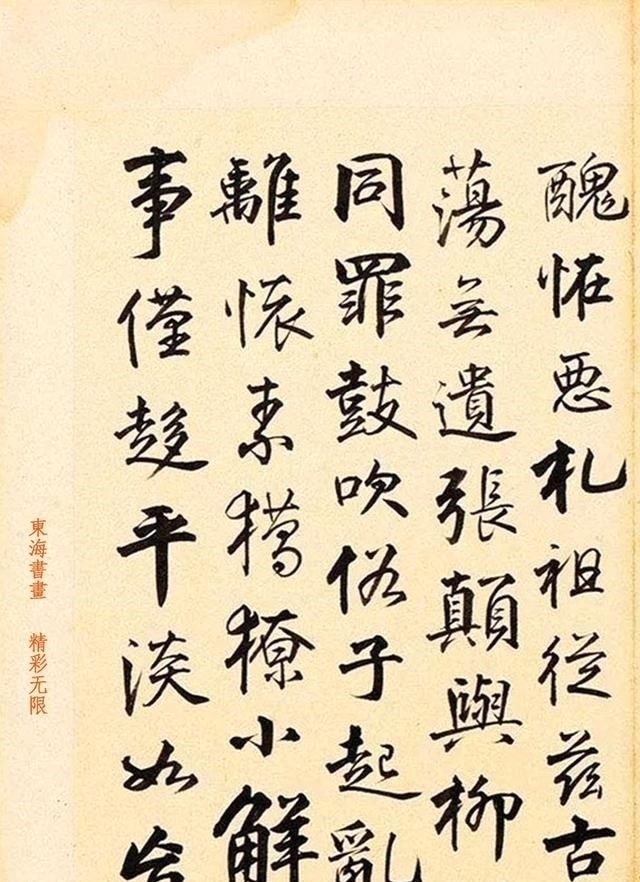 醜恠惡札祖從茲古
蕩無遺張顛與柳
同罪鼓吹俗子起亂
離懷素獦獠小解
事僅趍平淡如
東海書畫 精彩无限